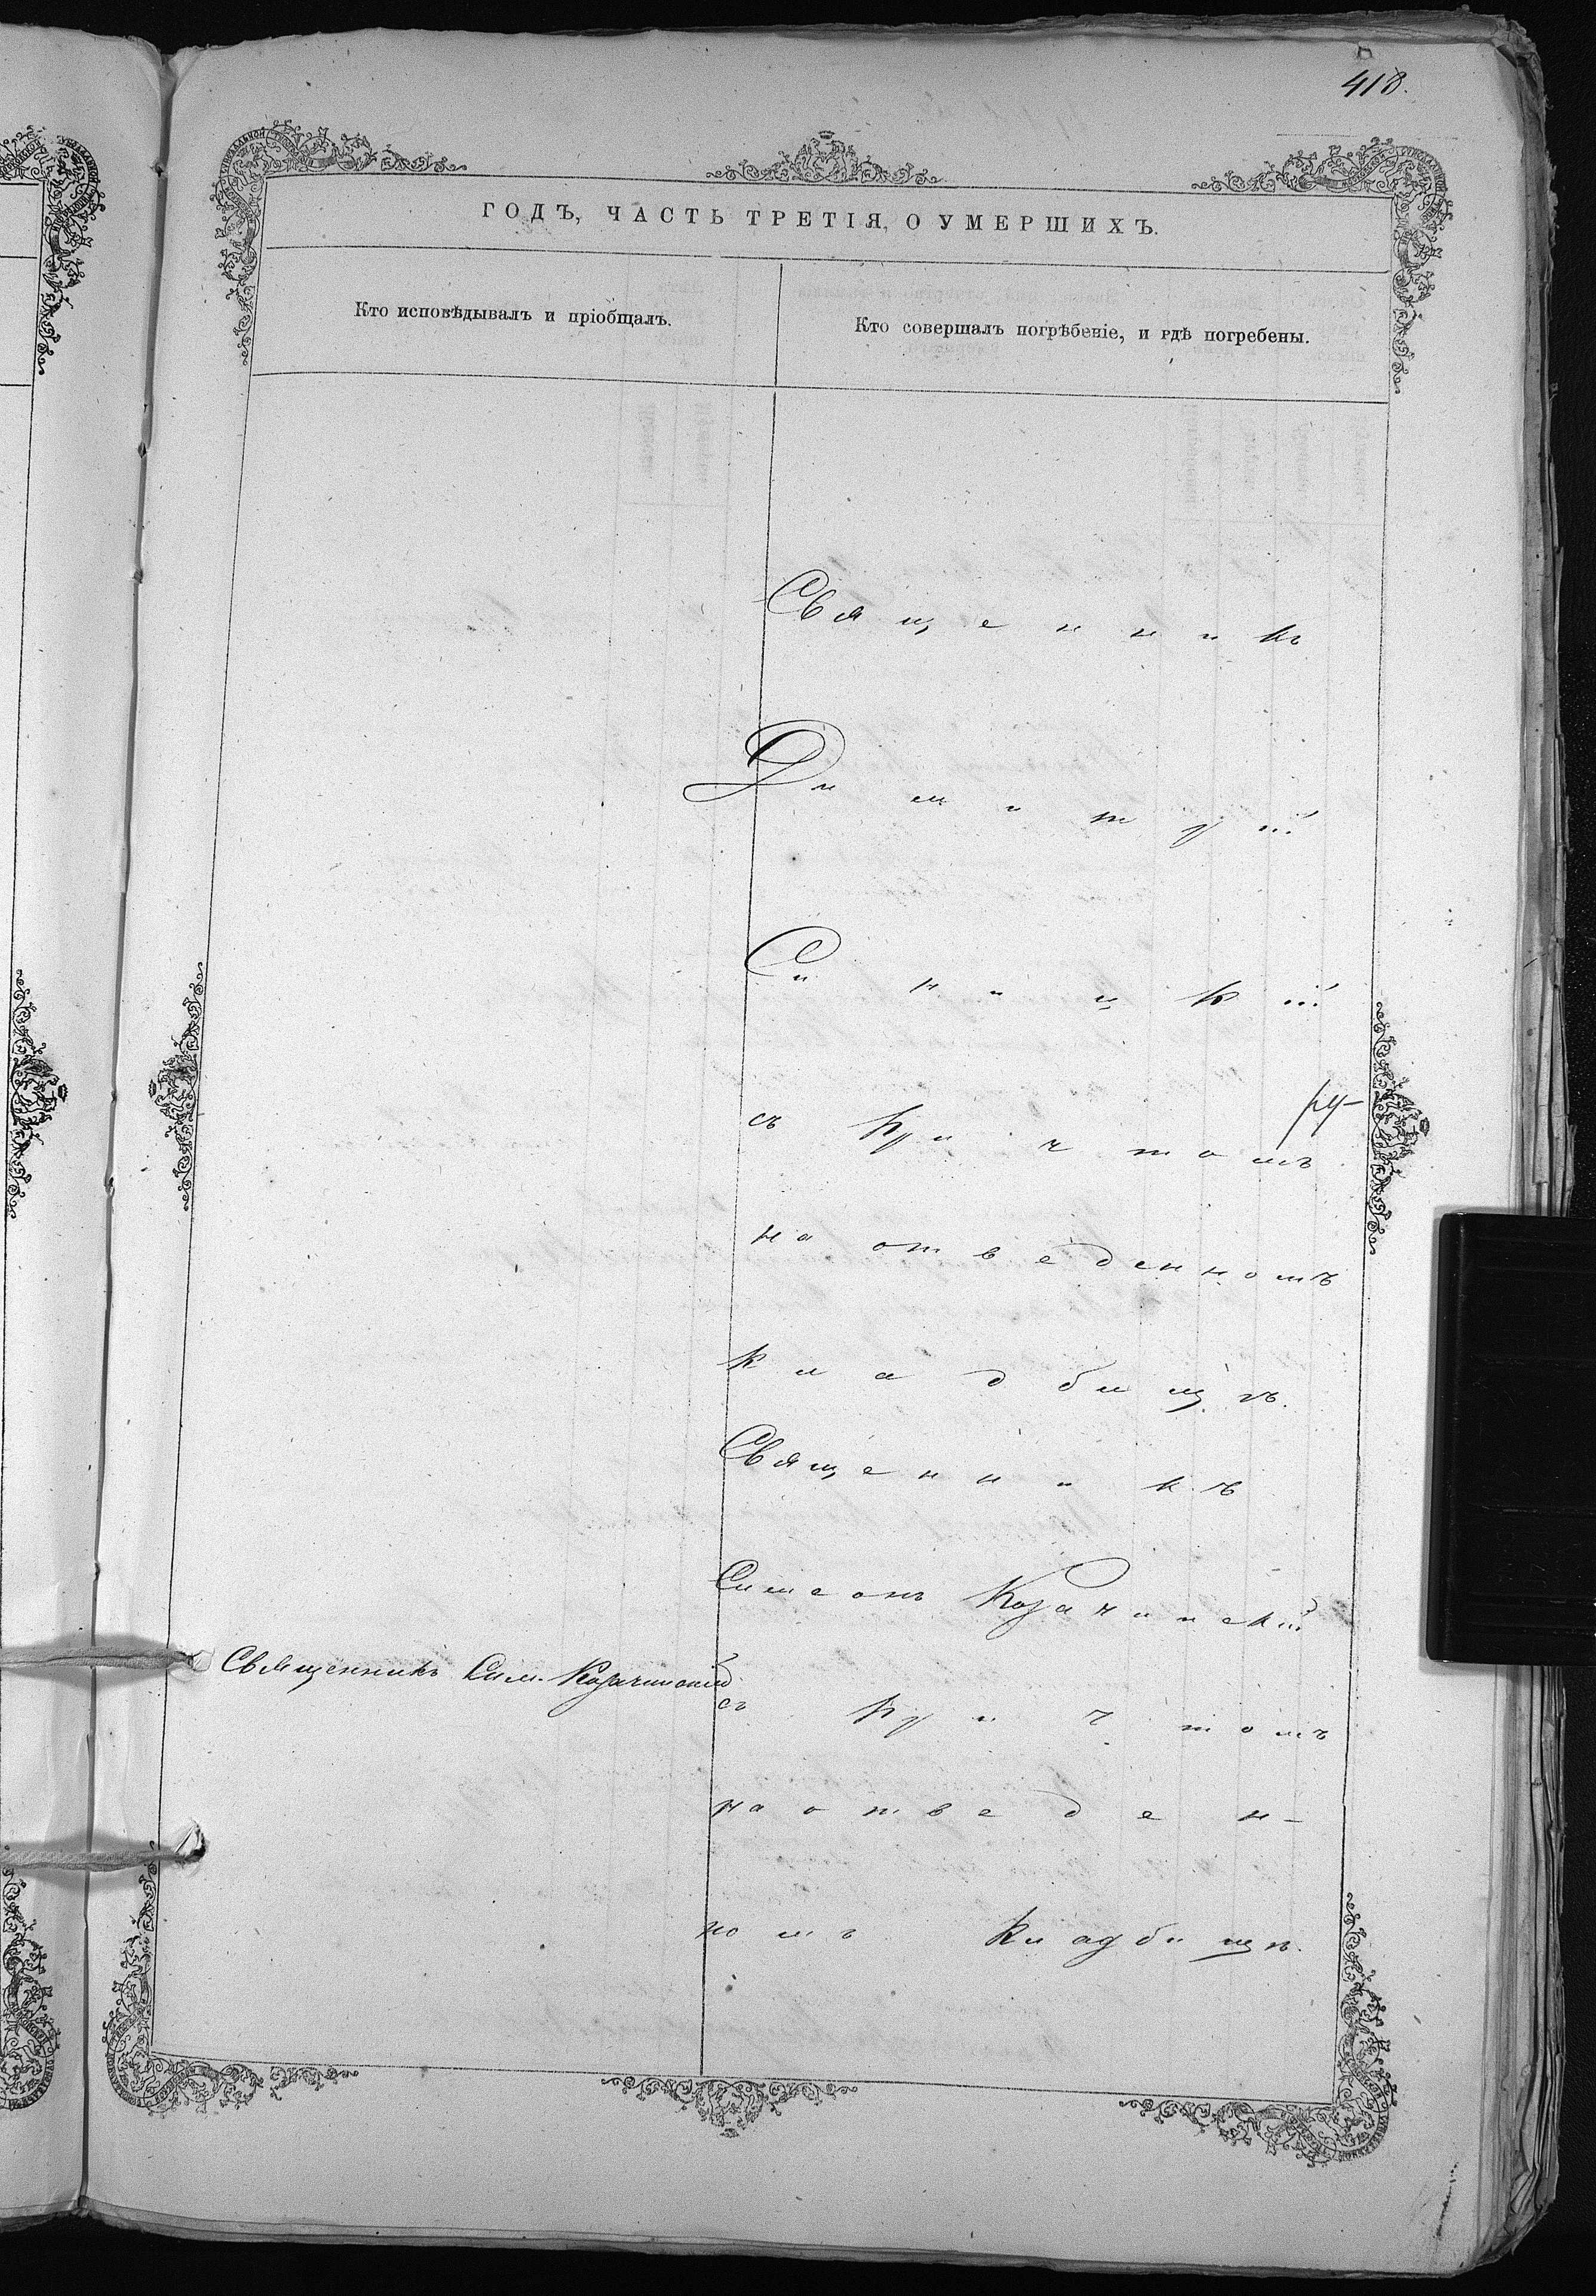 418.
ГОДЪ, ЧАСТЬ ТРЕТІЯ, О УМЕРШИХЪ.
Кто исповѣдывалъ и пріобщалъ.
Кто совершалъ погрѣбеніе, и гдѣ погребены.
Священникъ
Димитрій
Синицкій
съ причтомъ
на отведенномъ
кладбищѣ.
Священникъ
Симеонъ Казачинскій
Священникъ Сим. Казачинскій
съ причтомъ
на отведен-
номъ кладбищѣ.